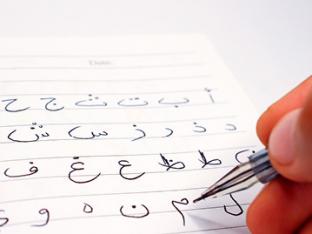 Date:
أ ب ت ث ج ح
د ذ ر ز س ش
ط ظ ع غ ف
ل م ن ه و ي